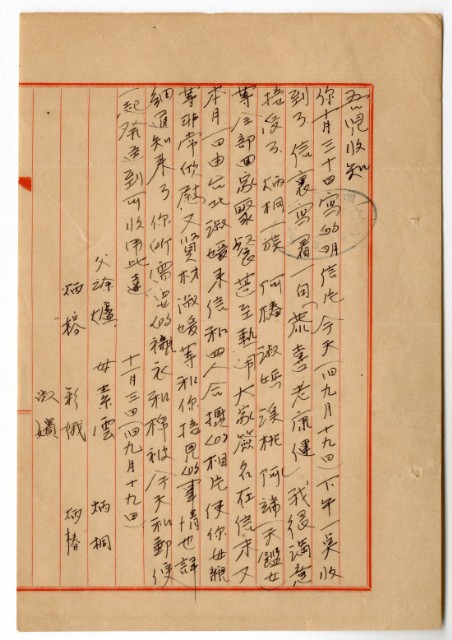 吾兒收知
你十月三十四寫的明信片今天(四九月十九四)下午一吳收
到了信裏寫着一句「恭喜老康健」我很滿意
接後了炳桐一族 阿椿 淑嫣 溪桃 阿端 天鑑女
等全部回家聚餐甚至熱鬧大家簽名在信末又
本月一四由台北淑媛來信和四人合攝的相片使你母親
等非常欣慰又賢材淑媛等和你接見的事情也詳
細通知來了你所需要的襯衣和棉被今天和郵便
一起發送到可收用此達
十一月三四(四九月十九四)
父 母素雲 炳桐
炳榕 彩娥 炳椿
淑